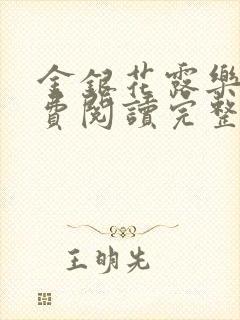 金銀花露樂
費閱讀完整
王明先